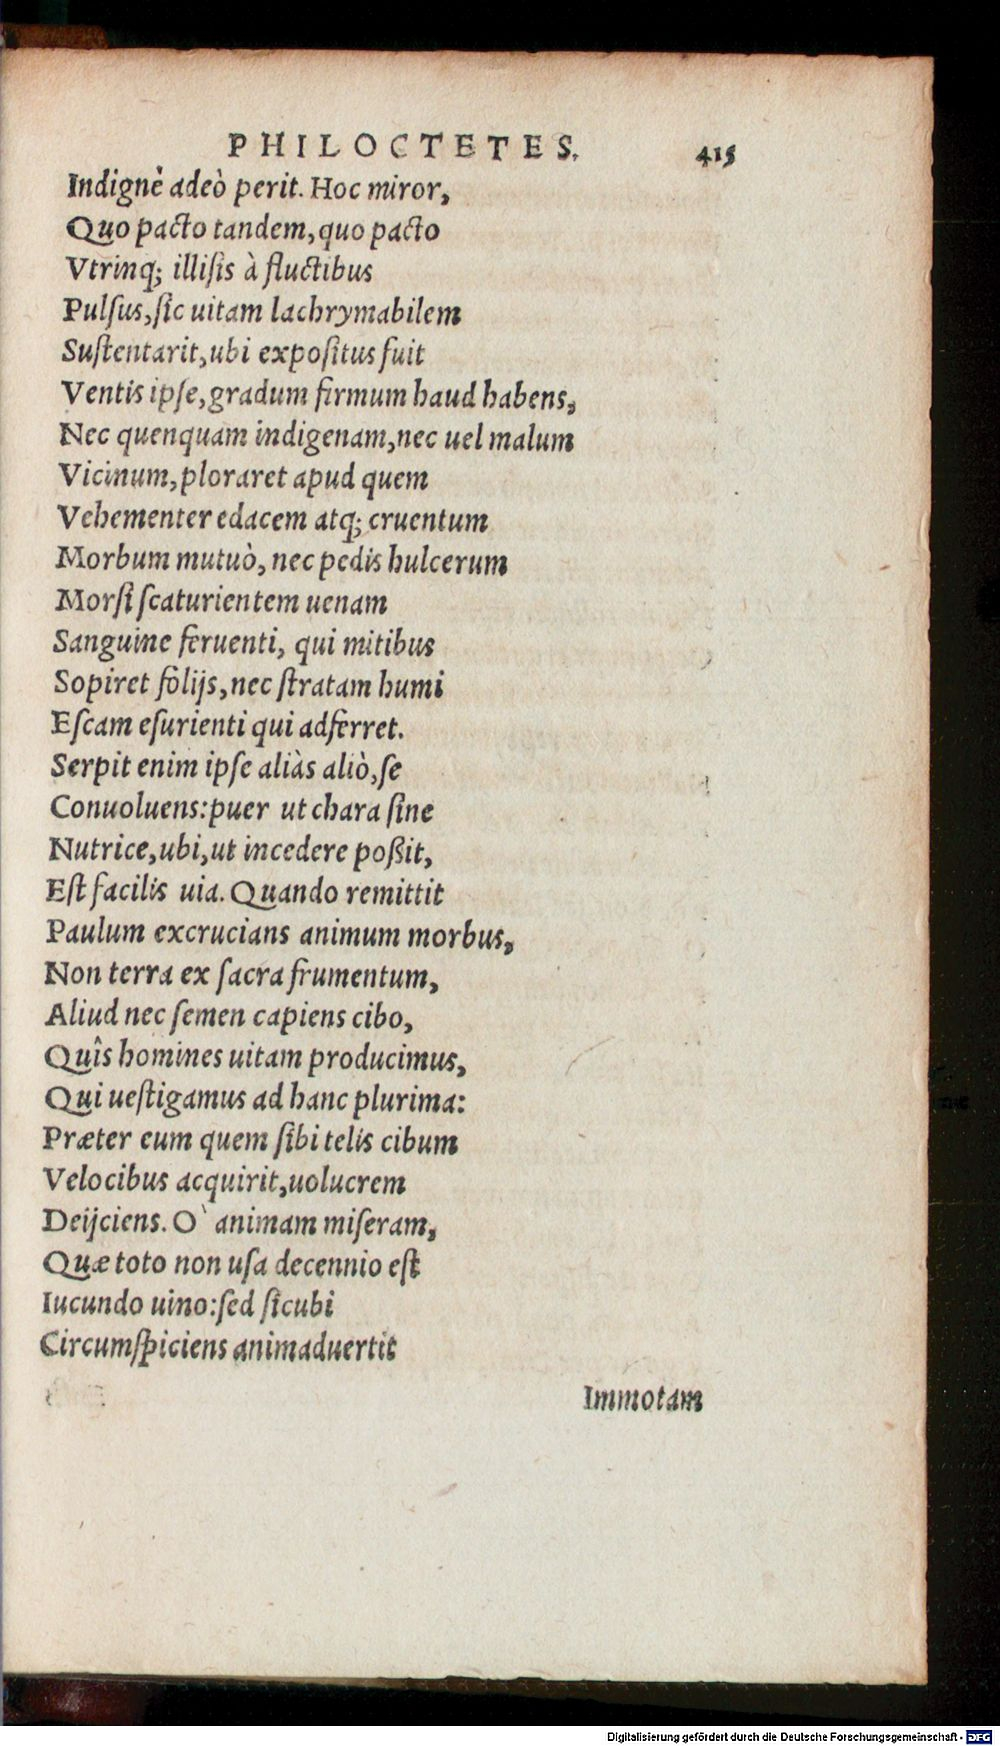 PHILOCTETES. 415
Indignè adeò perit. Hoc miror,
Quo pacto tandem, quo pacto
Vtrinq; illiſis à fluctibus
Pulſus, ſic uitam lachrymabilem
Suſtentarit, ubi expoſitus fuit
Ventis ipſe, gradum firmum haud habens,
Nec quenquam indigenam, nec uel malum
Vicinum, ploraret apud quem
Vehementer edacem atq; cruentum
Morbum mutuò, nec pedis hulcerum
Morſi ſcaturientem uenam
Sanguine feruenti, qui mitibus
Sopiret folijs, nec ſtratam humi
Eſcam eſurienti qui adferret.
Serpit enim ipſe aliàs aliò, ſe
Conuoluens: puer ut chara ſine
Nutrice, ubi, ut incedere poßit,
Eſt facilis uia. Quando remittit
Paulum excrucians animum morbus,
Non terra ex ſacra frumentum,
Aliud nec ſemen capiens cibo,
Quîs homines uitam producimus,
Qui ueſtigamus ad hanc plurima:
Præter eum quem ſibi telis cibum
Velocibus acquirit, uolucrem
Deijciens. O` animam miſeram,
Quæ toto non uſa decennio eſt
Iucundo uino: ſed ſicubi
Circumſpiciens animaduertit
Immotam
Digitalisierung gefördert durch die Deutsche Forschungsgemeinschaft - DFG